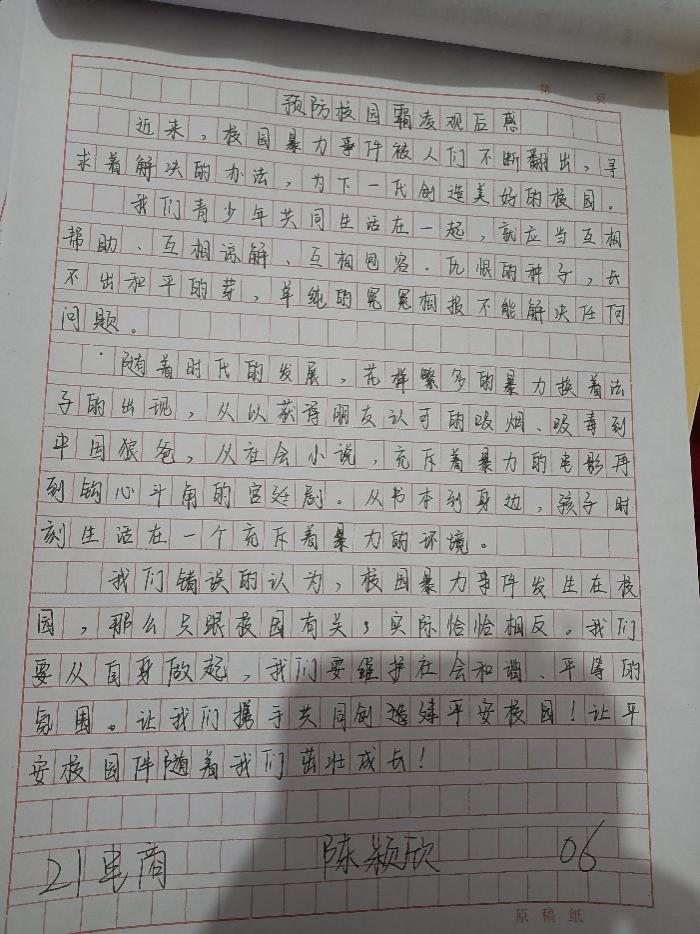 第 页
预防校园霸凌观后感
近来，校园暴力事件被人们不断翻出，寻
求着解决的办法，为下一代创造美好的校园。
我们青少年共同生活在一起，就应当互相
帮助、互相谅解、互相包容。仇恨的种子，长
不出和平的芽，单纯的冤冤相报不能解决任何
问题。
随着时代的发展，花样繁多的暴力换着法
子的出现，从以获得朋友认可的吸烟、吸毒到
中国狼爸，从社会小说，充斥着暴力的电影再
到钩心斗角的宫廷剧。从书本到身边，孩子时
刻生活在一个充斥着暴力的环境。
我们错误的认为，校园暴力事件发生在校
园，那么只跟校园有关；实际恰恰相反。我们
要从自身做起，我们要维护社会和谐、平等的
氛围。让我们携手共同创造建平安校园！让平
安校园伴随着我们茁壮成长！
21电商 陈颖欣 06
原稿纸